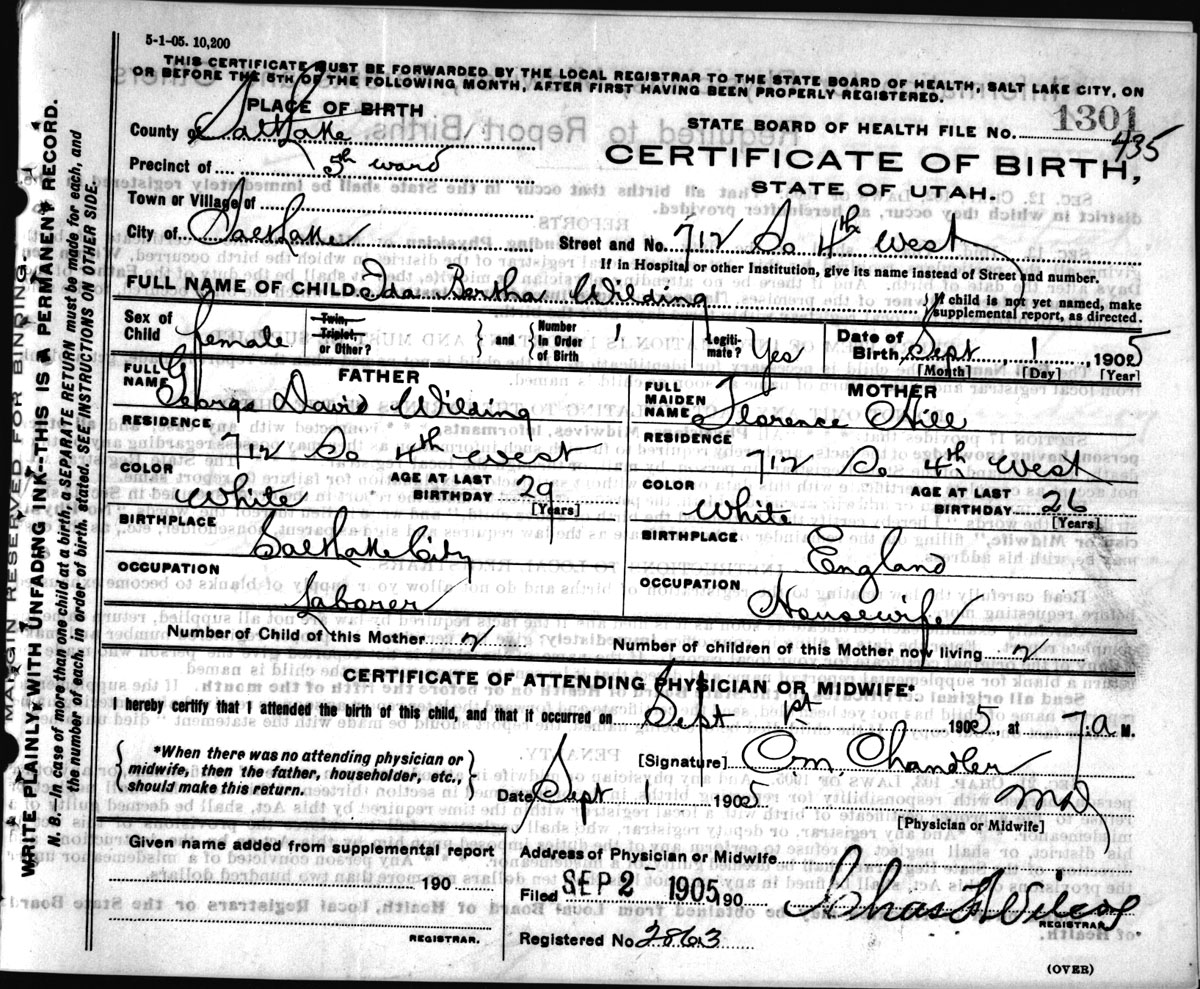 5-1-05. 10,200
THIS CERTIFICATE MUST BE FORWARDED BY THE LOCAL REGISTRAR TO THE STATE BOARD OF HEALTH, SALT LAKE CITY, ON
OR BEFORE THE 5TH OF THE FOLLOWING MONTH, AFTER FIRST HAVING BEEN PROPERLY REGISTERED.
PLACE OF BIRTH
County of Salt Lake
Precinct of 5th ward
Town or Village of
City of Salt Lake
STATE BOARD OF HEALTH FILE NO. 1301
435
CERTIFICATE OF BIRTH,
STATE OF UTAH.
Street and No. 712 So 4th West
If in Hospital or other Institution, give its name instead of Street and number.
FULL NAME OF CHILD Ida Bertha Wilding
If child is not yet named, make supplemental report, as directed.
Sex of Child female
Twin, Triplet, or Other?
and
Number In Order of Birth 1
Legiti- mate? Yes
Date of Birth, Sept 1 1905
[Month] [Day] [Year]
FATHER
FULL NAME George David Wilding
RESIDENCE
712 So 4th West
COLOR White
AGE AT LAST BIRTHDAY 29
[Years]
BIRTHPLACE
Salt Lake City
OCCUPATION
Laborer
MOTHER
FULL MAIDEN NAME Florence Hill
RESIDENCE
712 So 4th West
COLOR White
AGE AT LAST BIRTHDAY 26
[Years]
BIRTHPLACE
England
OCCUPATION
Housewife
Number of Child of this Mother 2
Number of children of this Mother now living 2
CERTIFICATE OF ATTENDING PHYSICIAN OR MIDWIFE*
I hereby certify that I attended the birth of this child, and that it occurred on Sept 1st 1905, at 7 a M.
*When there was no attending physician or
midwife, then the father, householder, etc.,
should make this return.
[Signature] C. M. Chandler
Date Sept 1 1905
MD
[Physician or Midwife]
Given name added from supplemental report
190
REGISTRAR.
Address of Physician or Midwife
Filed SEP 2 - 1905 190
Chas F Wilcox
REGISTRAR
Registered No. 2863
(OVER)
MARGIN RESERVED FOR BINDING.
WRITE PLAINLY WITH UNFADING INK--THIS IS A PERMANENT RECORD.
N. B.—In case of more than one child at a birth, a SEPARATE RETURN must be made for each, and
the number of each, in order of birth, stated. SEE INSTRUCTIONS ON OTHER SIDE.